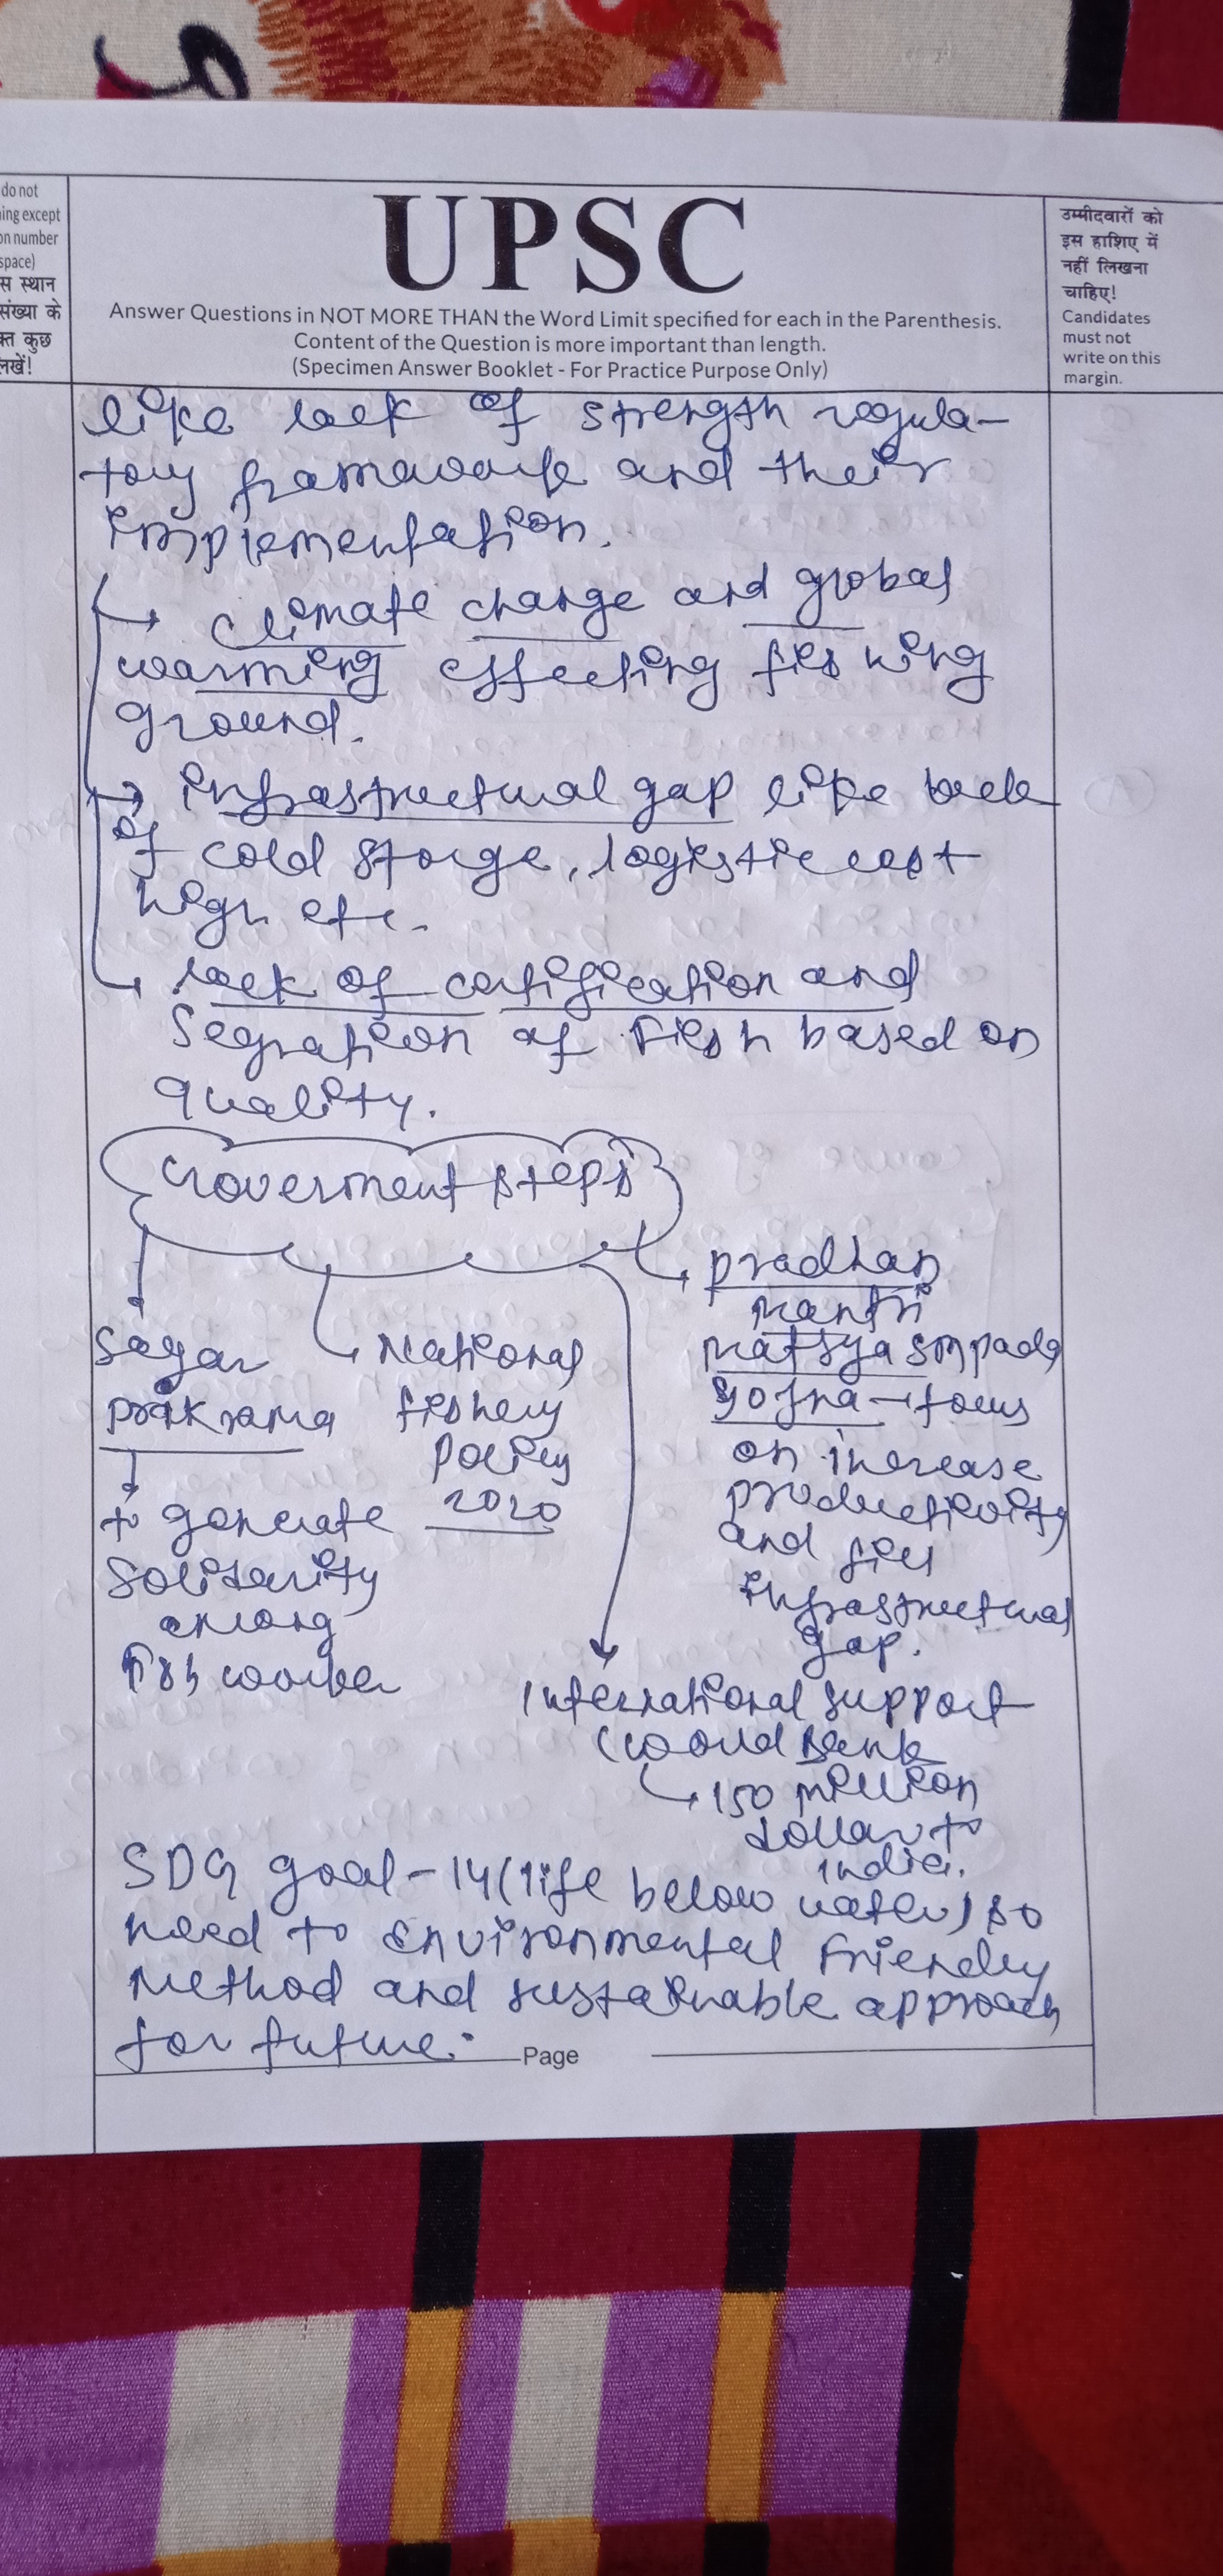 do not
ing except
on number
space)
स स्थान
संख्या के
क्त कुछ
लखें!
UPSC
Answer Questions in NOT MORE THAN the Word Limit specified for each in the Parenthesis.
Content of the Question is more important than length.
(Specimen Answer Booklet - For Practice Purpose Only)
उम्मीदवारों को
इस हाशिए में
नहीं लिखना
चाहिए!
Candidates
must not
write on this
margin.
like lack of strength regula-
tory framework and their
implementation.
→ climate change and global
warming effecting fishing
ground.
→ infrastructual gap like lack
of cold storge, logistic cost
high etc.
→ lack of certification and
Segration of Fish based on
quality.
Goverment steps
Sagar
prikrama
to generate
Soliderity
among
fish worker
National
fishery
Policy
2020
pradhan
mantri
matsya smpada
yojna → focus
on increase
productivity
and fill
infrastructual
gap.
International support
(World Bank
→ 150 million
dollar to
india.
SDG goal - 14 (life below water) so
need to environmental friendly
method and sustainable approach
for future.
Page